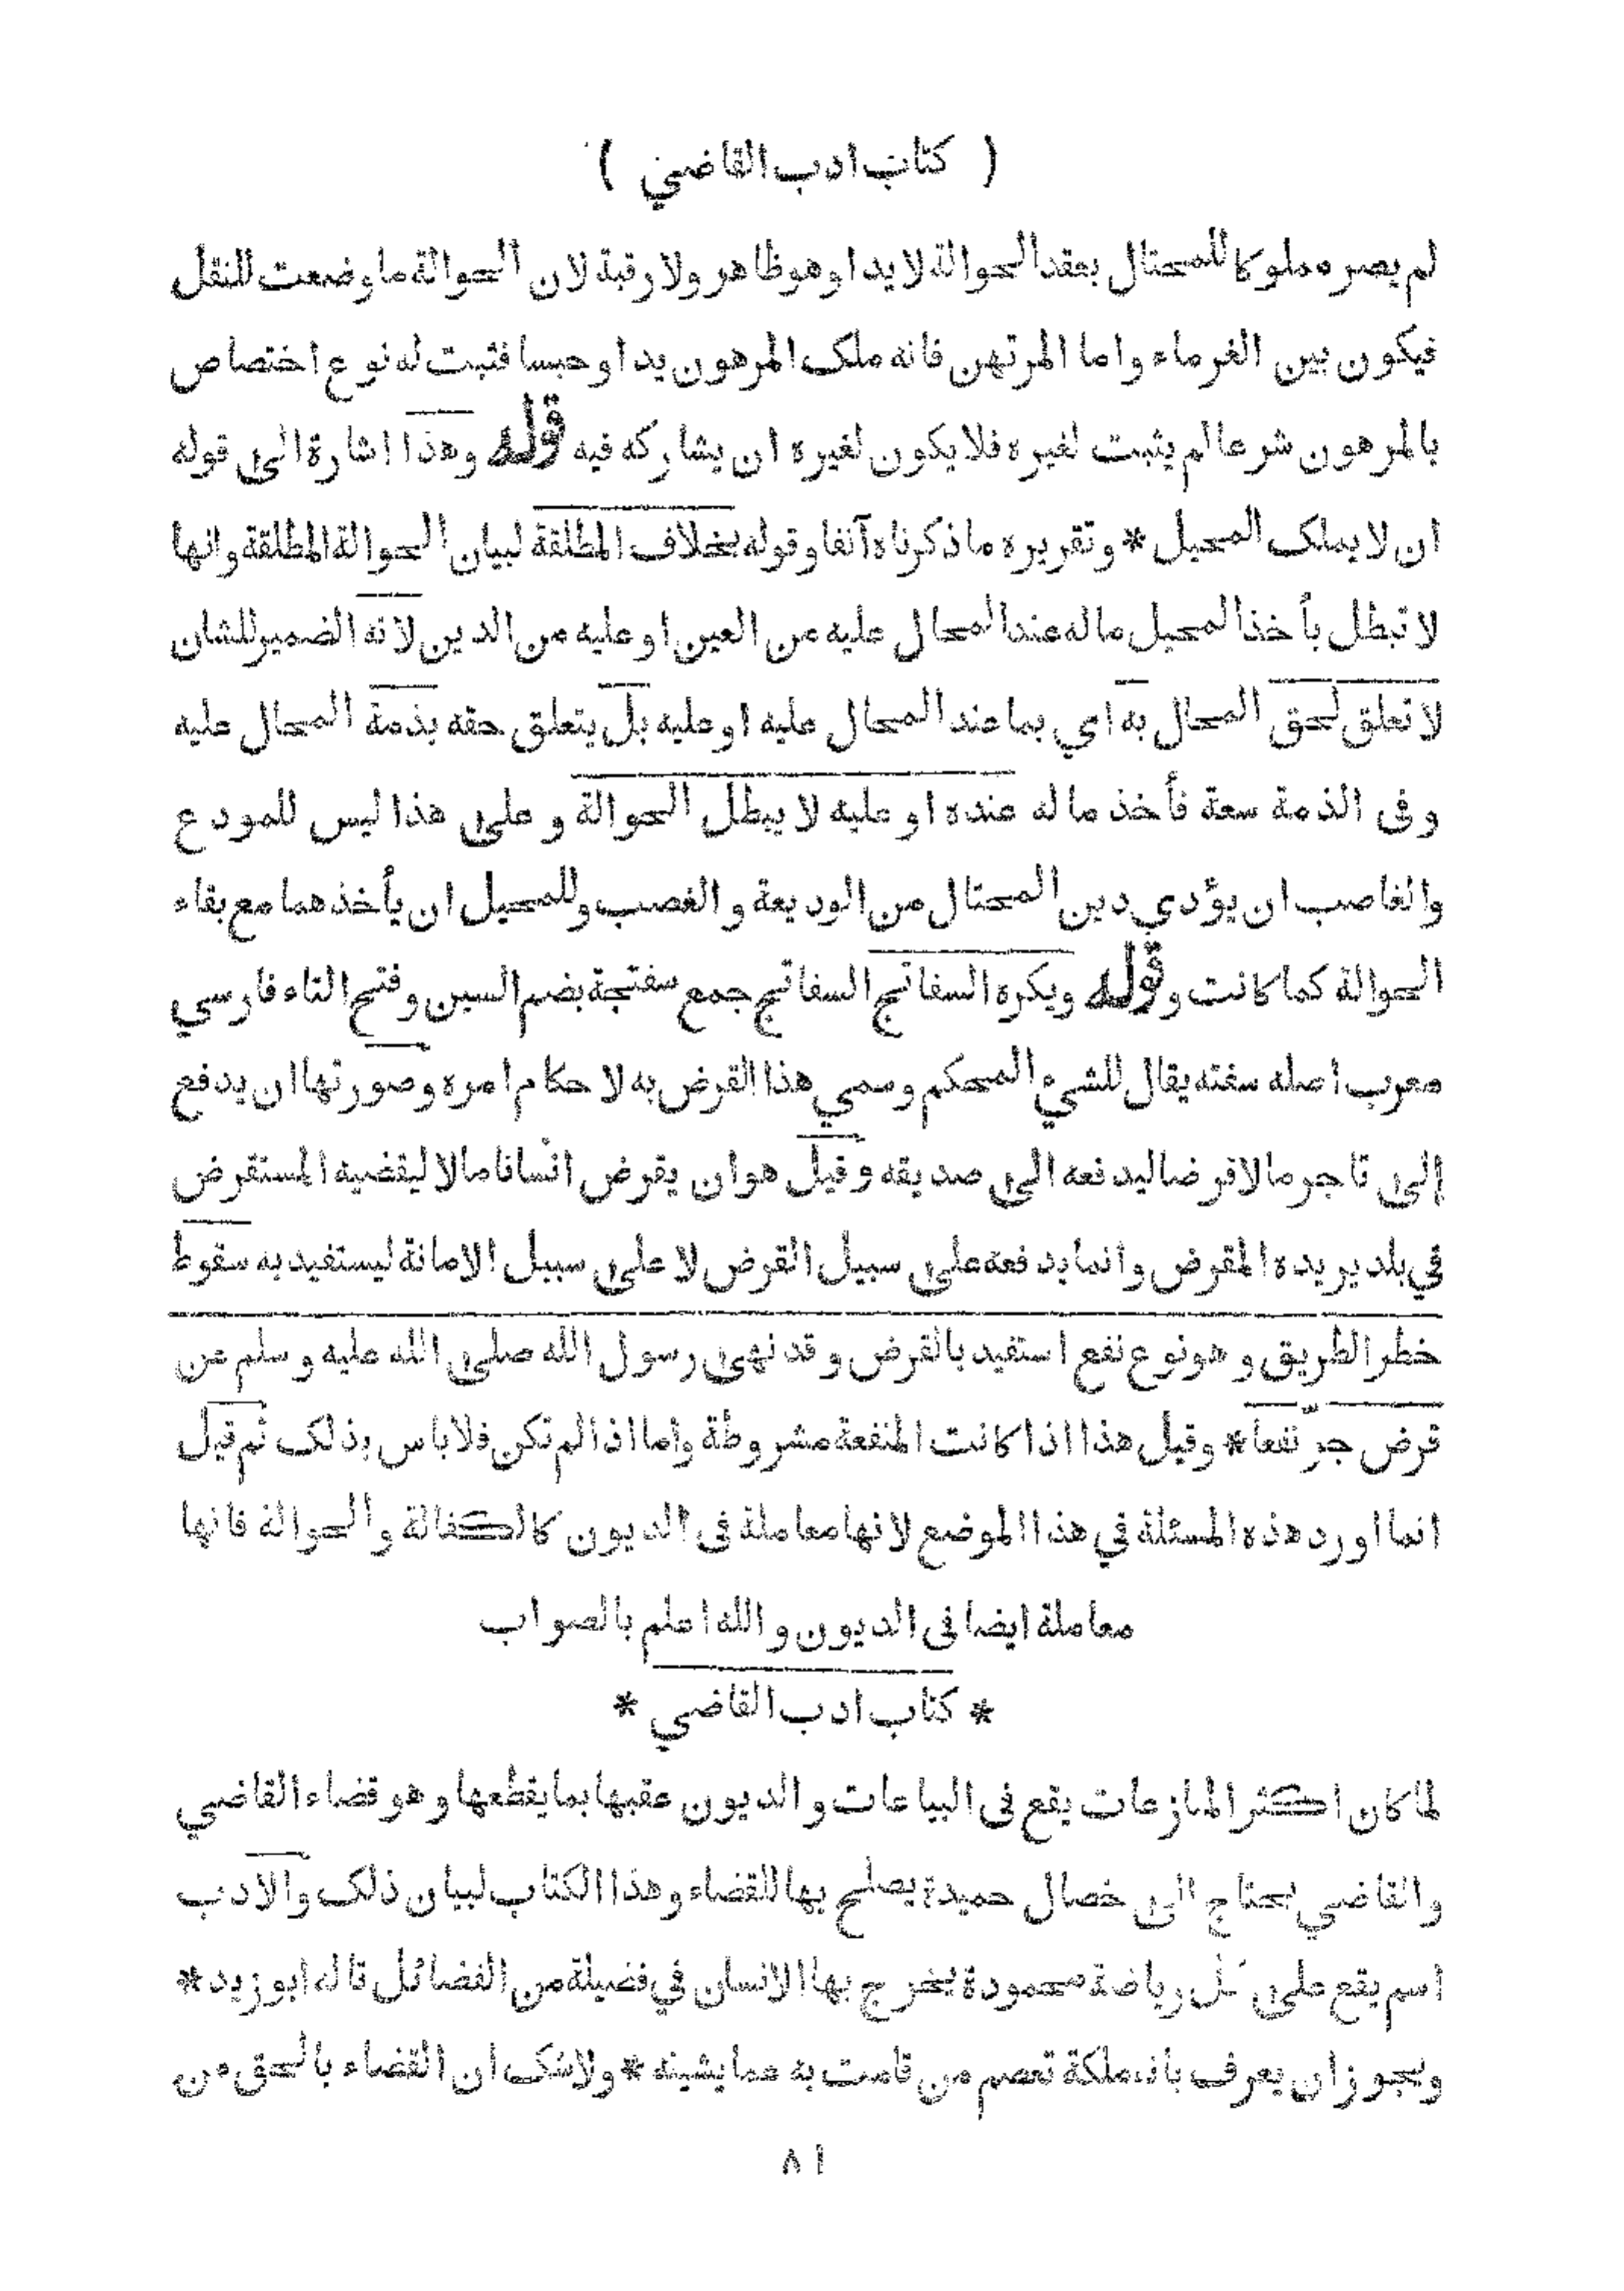 ( كتاب ادب القاضي )
لم يصر مملوكا للمحتال بعقد الحوالة لا يدا وهو ظاهر ولا رقبة لان الحوالة ما وضعت للنقل
فيكون بين الغرماء واما المرتهن فانه ملك المرهون يدا وحبسا فثبت له نوع اختصاص
بالمرهون شرعا لم يثبت لغيره فلا يكون لغيره ان يشاركه فيه قوله وهذا اشارة الى قوله
ان لا يملك المحيل * وتقريره ما ذكرناه آنفا وقوله بخلاف المطلقة لبيان الحوالة المطلقة وانها
لا تبطل بأخذ المحيل ماله عند المحال عليه من العين او عليه من الدين لانه الضمير للشان
لا تعلق لحق المحال به اي بما عند المحال عليه او عليه بل يتعلق حقه بذمة المحال عليه
وفى الذمة سعة فأخذ ماله عنده او عليه لا يبطل الحوالة و على هذا ليس للمودع
والغاصب ان يؤدي دين المحتال من الوديعة و الغصب وللمحيل ان يأخذهما مع بقاء
الحوالة كما كانت وقوله ويكره السفاتج السفاتج جمع سفتجة بضم السين وفتح التاء فارسي
معرب اصله سفته يقال للشيء المحكم وسمي هذا القرض به لاحكام امره وصورتها ان يدفع
إلى تاجر مالا قرضا ليدفعه الى صديقه وقيل هو ان يقرض انسانا مالا ليقضيه المستقرض
في بلد يريده المقرض وانما يدفعه على سبيل القرض لا على سبيل الامانة ليستفيد به سقوط
خطر الطريق و هو نوع نفع استفيد بالقرض وقد نهى رسول الله صلى الله عليه وسلم عن
قرض جرّ نفعا * وقيل هذا اذا كانت المنفعة مشروطة واما اذا لم تكن فلا باس بذلك ثم قيل
انما اورد هذه المسئلة في هذا الموضع لانها معاملة فى الديون كالكفالة والحوالة فانها
معاملة ايضا فى الديون والله اعلم بالصواب
* كتاب ادب القاضي *
لما كان اكثر المنازعات يقع فى البياعات والديون عقبها بما يقطعها وهو قضاء القاضي
والقاضي يحتاج الى خصال حميدة يصلح بها للقضاء وهذا الكتاب لبيان ذلك والادب
اسم يقع على كل رياضة محمودة يخرج بها الانسان في فضيلة من الفضائل قاله ابو زيد *
ويجوز ان يعرف بانه ملكة تعصم من قامت به عما يشينه * ولا شك ان القضاء بالحق من
٨١